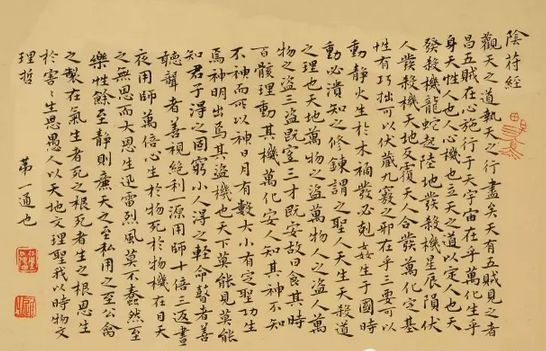 陰符經
觀天之道執天之行盡矣天有五賊見之者
昌五賊在心施行于天宇宙在乎萬化生乎
身天性人也人心機也立天之道以定人也天
發殺機龍蛇起陸地發殺機星辰隕伏
人發殺機天地反覆天人合發萬化定基
性有巧拙可以伏藏九竅之邪在乎三要可以
動靜火生於木禍發必剋姦生于國時
動必潰知之修鍊謂之聖人天生天殺道
之理也天地萬物之盜萬物人之盜人萬
物之盜三盜既宜三才既安故曰食其時
百骸理動其機萬化安人知其神不知
不神而可以神日月有數大小有定聖功生
焉神明出焉其盜機也天下莫能見莫能
知君子得之固窮小人得之輕命瞽者善
聽聾者善視絕利一源用師十倍三返晝
夜用師萬倍心生於物死於物機在目天
之無思而大恩生迅雷烈風莫不蠢然至
樂性餘至靜則廉天之至私用之至公禽
之製在氣生者死之根死者生之根恩生
於害〻生恩愚人以天地文理聖我以時物文
理哲
第一通也